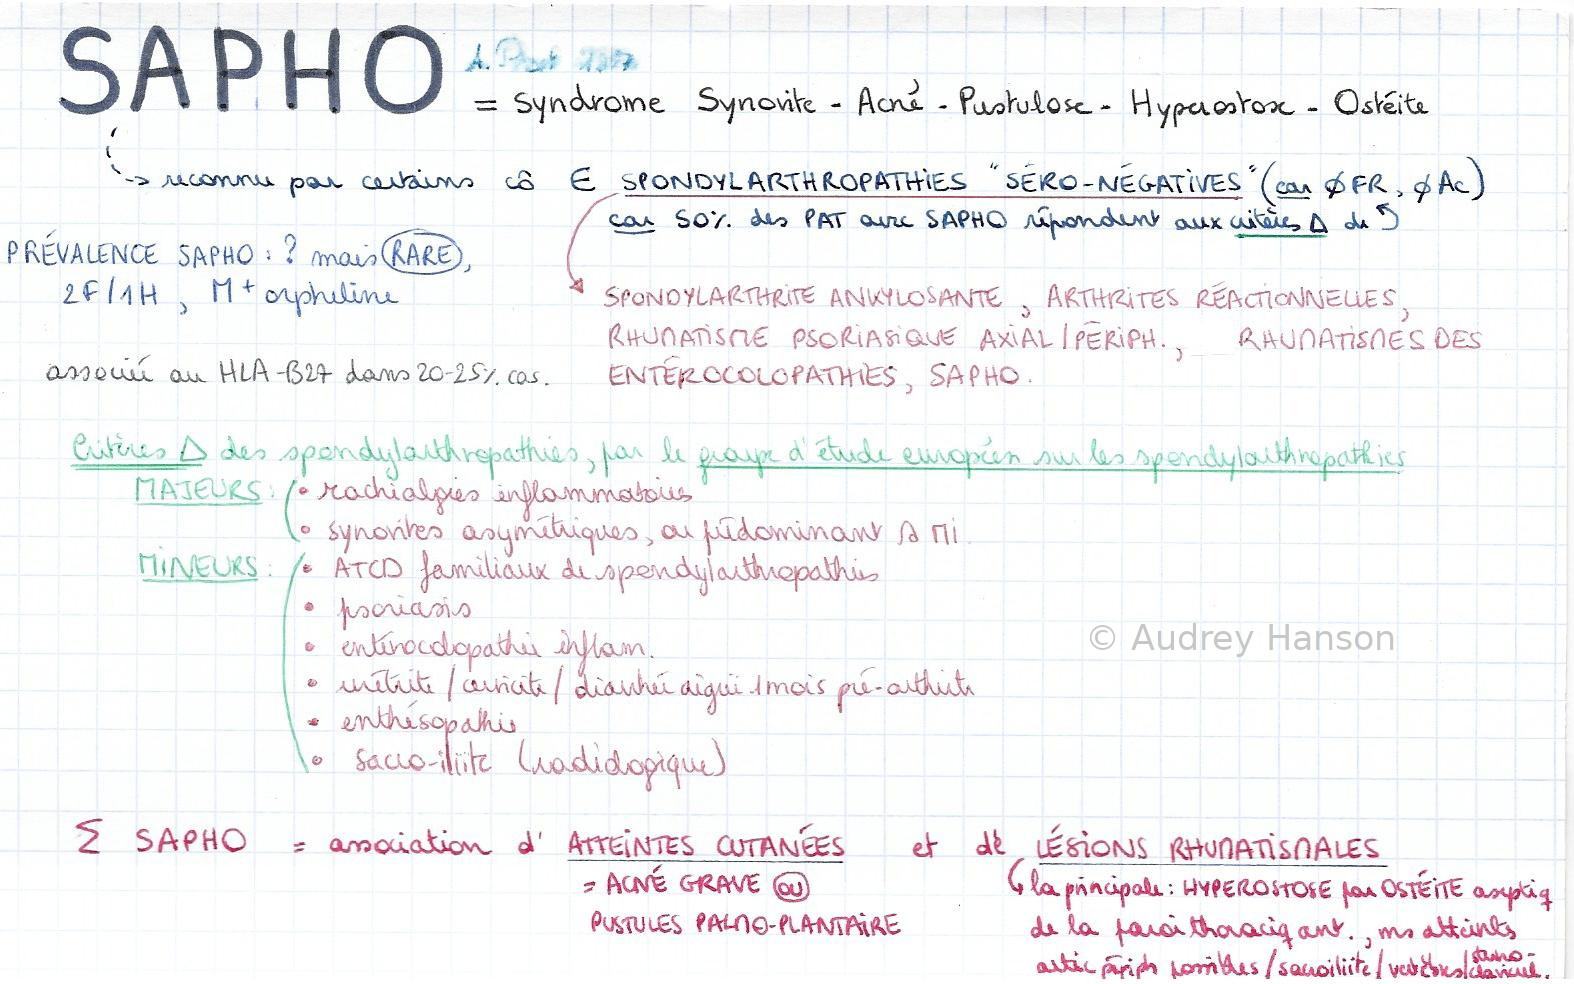 SAPHO
= syndrome Synovite - Acné - Pustulose - Hyperostose - Ostéite
-> reconnu par certains cô ∈ SPONDYLARTHROPATHIES "SÉRO-NÉGATIVES" (car ∅ FR, ∅ Ac)
car 50% des PAT avec SAPHO répondent aux critères Δ de
PRÉVALENCE SAPHO : ? mais RARE,
2F/1H, M+ orpheline
SPONDYLARTHRITE ANKYLOSANTE, ARTHRITES RÉACTIONNELLES,
RHUMATISME PSORIASIQUE AXIAL/PÉRIPH., RHUMATISMES DES
ENTÉROCOLOPATHIES, SAPHO.
associé au HLA-B27 dans 20-25% cas.
Critères Δ des spondylarthropathies, par le groupe d'étude européen sur les spondylarthropathies
MAJEURS : • rachialgies inflammatoires
• synovites asymétriques, ou prédominant MI
MINEURS : • ATCD familiaux de spondylarthropathies
• psoriasis
• entérocolopathie inflam.
• urétrite / cervicite / diarrhée aiguë 1 mois pré-arthrite
• enthésopathie
• sacro-iliite (radiologique)
Σ SAPHO = association d' ATTEINTES CUTANÉES et de LÉSIONS RHUMATISMALES
= ACNÉ GRAVE OU
PUSTULES PALMO-PLANTAIRE
la principale : HYPEROSTOSE par OSTÉITE aseptiq
de la paroi thoraciq ant., ms atteintes
artic périph possibles / sacroiliite / vertèbres / sterno-clavicul.
© Audrey Hanson